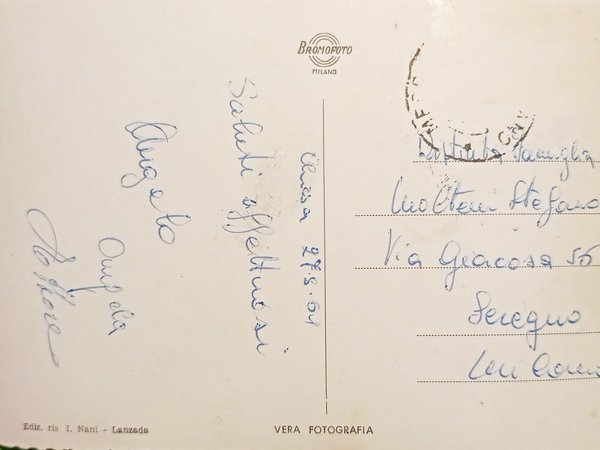 BROMOFOTO
MILANO
Chiesa 27-8-64
Saluti affettuosi
Angelo
Angela
Distinta Famiglia
Molteni Stefano
Via Giacosa 56
Seregno
Milano
Ediz. ris. I. Nani - Lanzada
VERA FOTOGRAFIA